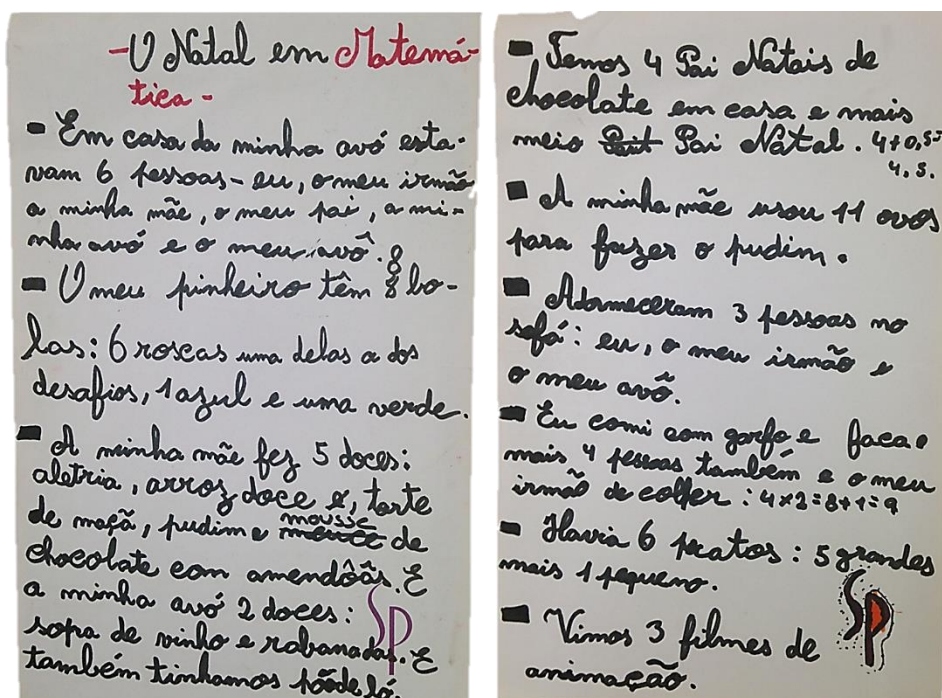 - O Natal em Matemá-
tica -
Em casa da minha avó esta-
vam 6 pessoas - eu, o meu irmão
a minha mãe, o meu pai, a mi-
nha avó e o meu avô.
O meu pinheiro têm 8 bo-
las: 6 roscas uma delas a dos
desafios, 1 azul e uma verde.
A minha mãe fez 5 doces:
aletria, arroz doce e, tarte
de maçã, pudim e mousse de
chocolate com amendôâs. E
a minha avó 2 doces:
sopa de vinho e rabanadas. E
também tinhamos pãode ló.
SP
Temos 4 Pai Natais de
chocolate em casa e mais
meio Pai Natal. 4+0,5=
4,5.
A minha mãe usou 11 ovos
para fazer o pudim.
Adormeceram 3 pessoas no
sofá: eu, o meu irmão e
o meu avô.
Eu comi com garfo e faca e
mais 4 pessoas também e o meu
irmão de colher: 4x2=8+1=9
Havia 6 pratos: 5 grandes
mais 1 pequeno.
Vimos 3 filmes de
animação.
SP